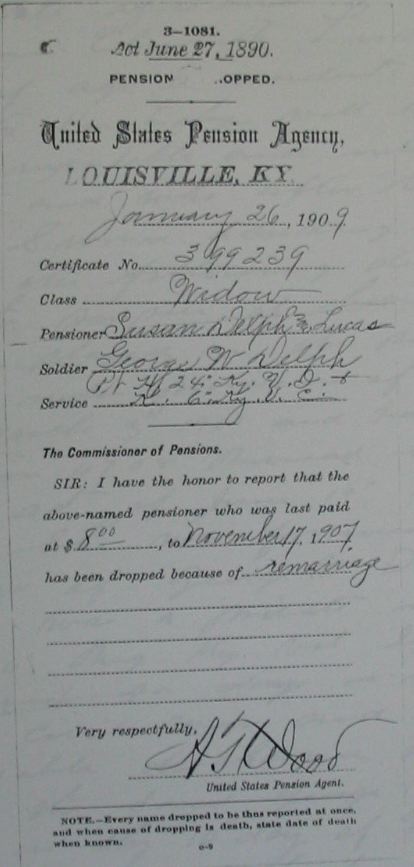 3—1081.
Act June 27, 1890.
PENSION OPPED.
United States Pension Agency,
LOUISVILLE, KY.
January 26, 1909
Certificate No. 399239
Class Widow
Pensioner Susan Delph Lucas
Soldier George W Delph
Pt. H, 24" Ky. V. I. +
Service K. 6" Ky V. C.
The Commissioner of Pensions.
SIR: I have the honor to report that the
above-named pensioner who was last paid
at $ 8.00, to November 17, 1907
has been dropped because of remarriage
Very respectfully,
Wood
United States Pension Agent.
NOTE.—Every name dropped to be thus reported at once,
and when cause of dropping is death, state date of death
when known.